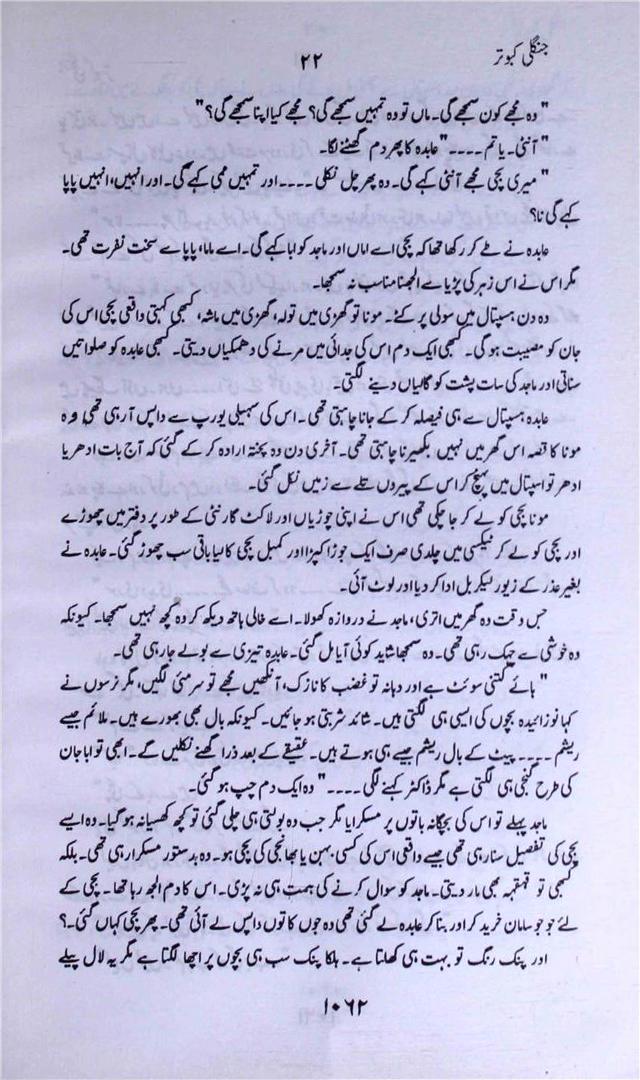 جنگلی کبوتر
۲۲
" وہ مجھے کون سمجھے گی۔ ماں تو وہ تمہیں سمجھے گی؟ مجھے کیا اپنا سمجھے گی؟ "
" آنٹی۔ یا تم ۔۔۔۔ " عابدہ کا پھر دم گھٹنے لگا۔
" میری بچی مجھے آنٹی کہے گی۔ وہ پھر مچل نکلی ۔۔۔۔ اور تمہیں ممی کہے گی۔ اور انہیں، انہیں پاپا
کہے گی نا؟
عابدہ نے طے کر رکھا تھا کہ بچی اسے اماں اور ماجد کو ابا کہے گی۔ اسے ماما، پاپا سے سخت نفرت تھی۔
مگر اس نے اس زہر کی پڑیا سے الجھنا مناسب نہ سمجھا۔
وہ دن ہسپتال میں سولی پر کٹے۔ مونا تو گھڑی میں تولہ، گھڑی میں ماشہ، کبھی کہتی واقعی بچی اس کی
جان کو مصیبت ہو گی۔ کبھی ایک دم اس کی جدائی میں مرنے کی دھمکیاں دیتی۔ کبھی عابدہ کو صلواتیں
سناتی اور ماجد کی سات پشت کو گالیاں دینے لگتی۔
عابدہ ہسپتال سے ہی فیصلہ کر کے جانا چاہتی تھی۔ اس کی سہیلی یورپ سے واپس آ رہی تھی وہ
مونا کا قصہ اس گھر میں نہیں بکھیرنا چاہتی تھی۔ آخری دن وہ پختہ ارادہ کر کے گئی کہ آج بات ادھر یا
ادھر تو اسپتال میں پہنچ کر اس کے پیروں تلے سے زمیں نکل گئی۔
مونا بچی کو لے کر جا چکی تھی اس نے اپنی چوڑیاں اور لاکٹ گارنٹی کے طور پر دفتر میں چھوڑے
اور بچی کو لے کر ٹیکسی میں چلدی صرف ایک جوڑا کپڑا اور کمبل بچی کا لیا باقی سب چھوڑ گئی۔ عابدہ نے
بغیر عذر کے زیور لیکر بل ادا کر دیا اور لوٹ آئی۔
جس وقت وہ گھر میں اتری، ماجد نے دروازہ کھولا۔ اسے خالی ہاتھ دیکھ کر وہ کچھ نہیں سمجھا۔ کیونکہ
وہ خوشی سے چہک رہی تھی۔ وہ سمجھا شاید کوئی آیا مل گئی۔ عابدہ تیزی سے بولے جا رہی تھی۔
" ہائے کتنی سوئٹ ہے اور دہانہ تو غضب کا نازک، آنکھیں مجھے تو سرمئی لگیں، مگر نرسوں نے
کہا نوزائیدہ بچوں کی ایسی ہی لگتی ہیں۔ شائد شربتی ہو جائیں۔ کیونکہ بال بھی بھورے ہیں۔ ملائم جیسے
ریشم ۔۔۔۔ پیٹ کے بال ریشم جیسے ہی ہوتے ہیں۔ عقیقے کے بعد ذرا گھنے نکلیں گے۔ ابھی تو ابا جان
کی طرح گنجی ہی لگتی ہے مگر ڈاکٹر کہنے لگی ۔۔۔۔ " وہ ایک دم چپ ہو گئی۔
ماجد پہلے تو اس کی بچگانہ باتوں پر مسکرایا مگر جب وہ بولتی ہی چلی گئی تو کچھ کھسیانہ ہو گیا۔ وہ ایسے
بچی کی تفصیل سنا رہی تھی جیسے واقعی اس کی کسی، بہن یا بھانجی کی بچی ہو۔ وہ بدستور مسکرا رہی تھی۔ بلکہ
کبھی تو قہقہہ بھی مار دیتی۔ ماجد کو سوال کرنے کی ہمت ہی نہ پڑی۔ اس کا دم الجھ رہا تھا۔ بچی کے
لئے جو جو سامان خرید کر اور بنا کر عابدہ لے گئی تھی وہ جوں کا توں واپس لے آئی تھی۔ پھر بچی کہاں گئی۔؟
اور پنک رنگ تو بہت ہی کھلتا ہے۔ ہلکا پنک سب ہی بچوں پر اچھا لگتا ہے مگر یہ لال پیلے
۱۰۶۲